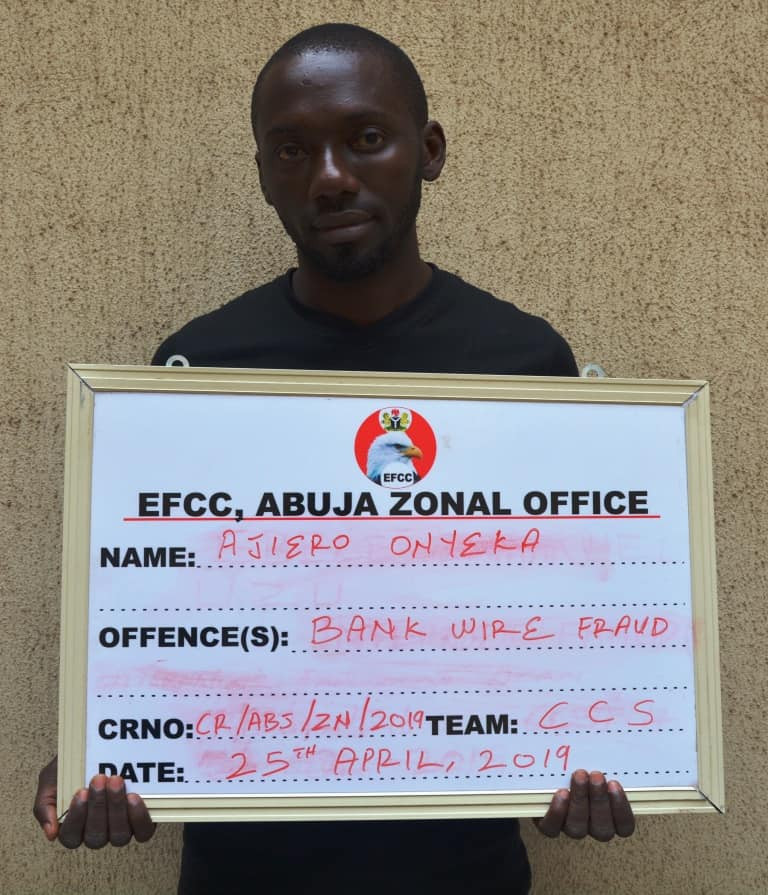 EFCC
EFCC, ABUJA ZONAL OFFICE
NAME: AJIERO ONYEKA
OFFENCE(S): BANK WIRE FRAUD
CRNO: CR/ABJ/ZN/2019 TEAM: CCS
DATE: 25TH APRIL, 2019